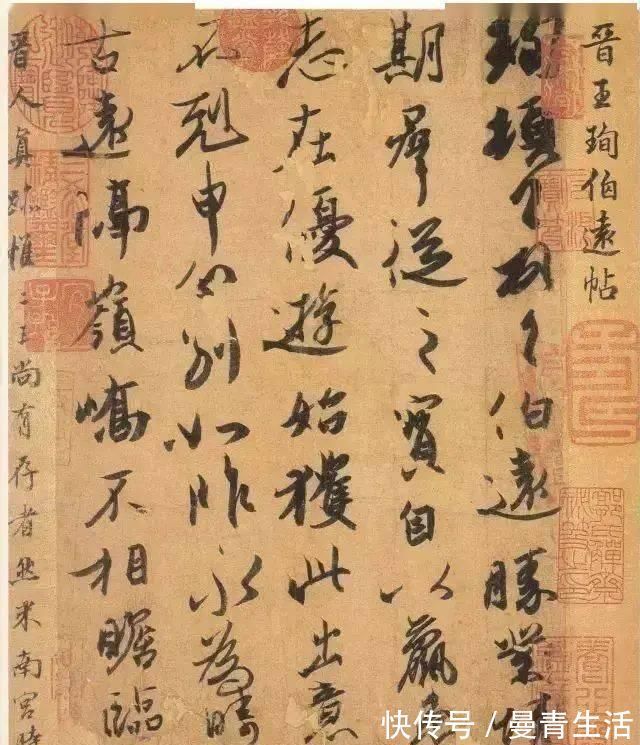 晉王珣伯遠帖
珣頓首頓首伯遠勝業情
期羣從之寶自以羸患
志在優遊始獲此出意
不剋申分別如昨永為疇
古遠隔嶺嶠不相瞻臨
晉人真跡惟二王尚有存者然米南宮時
快传号 / 曼青生活